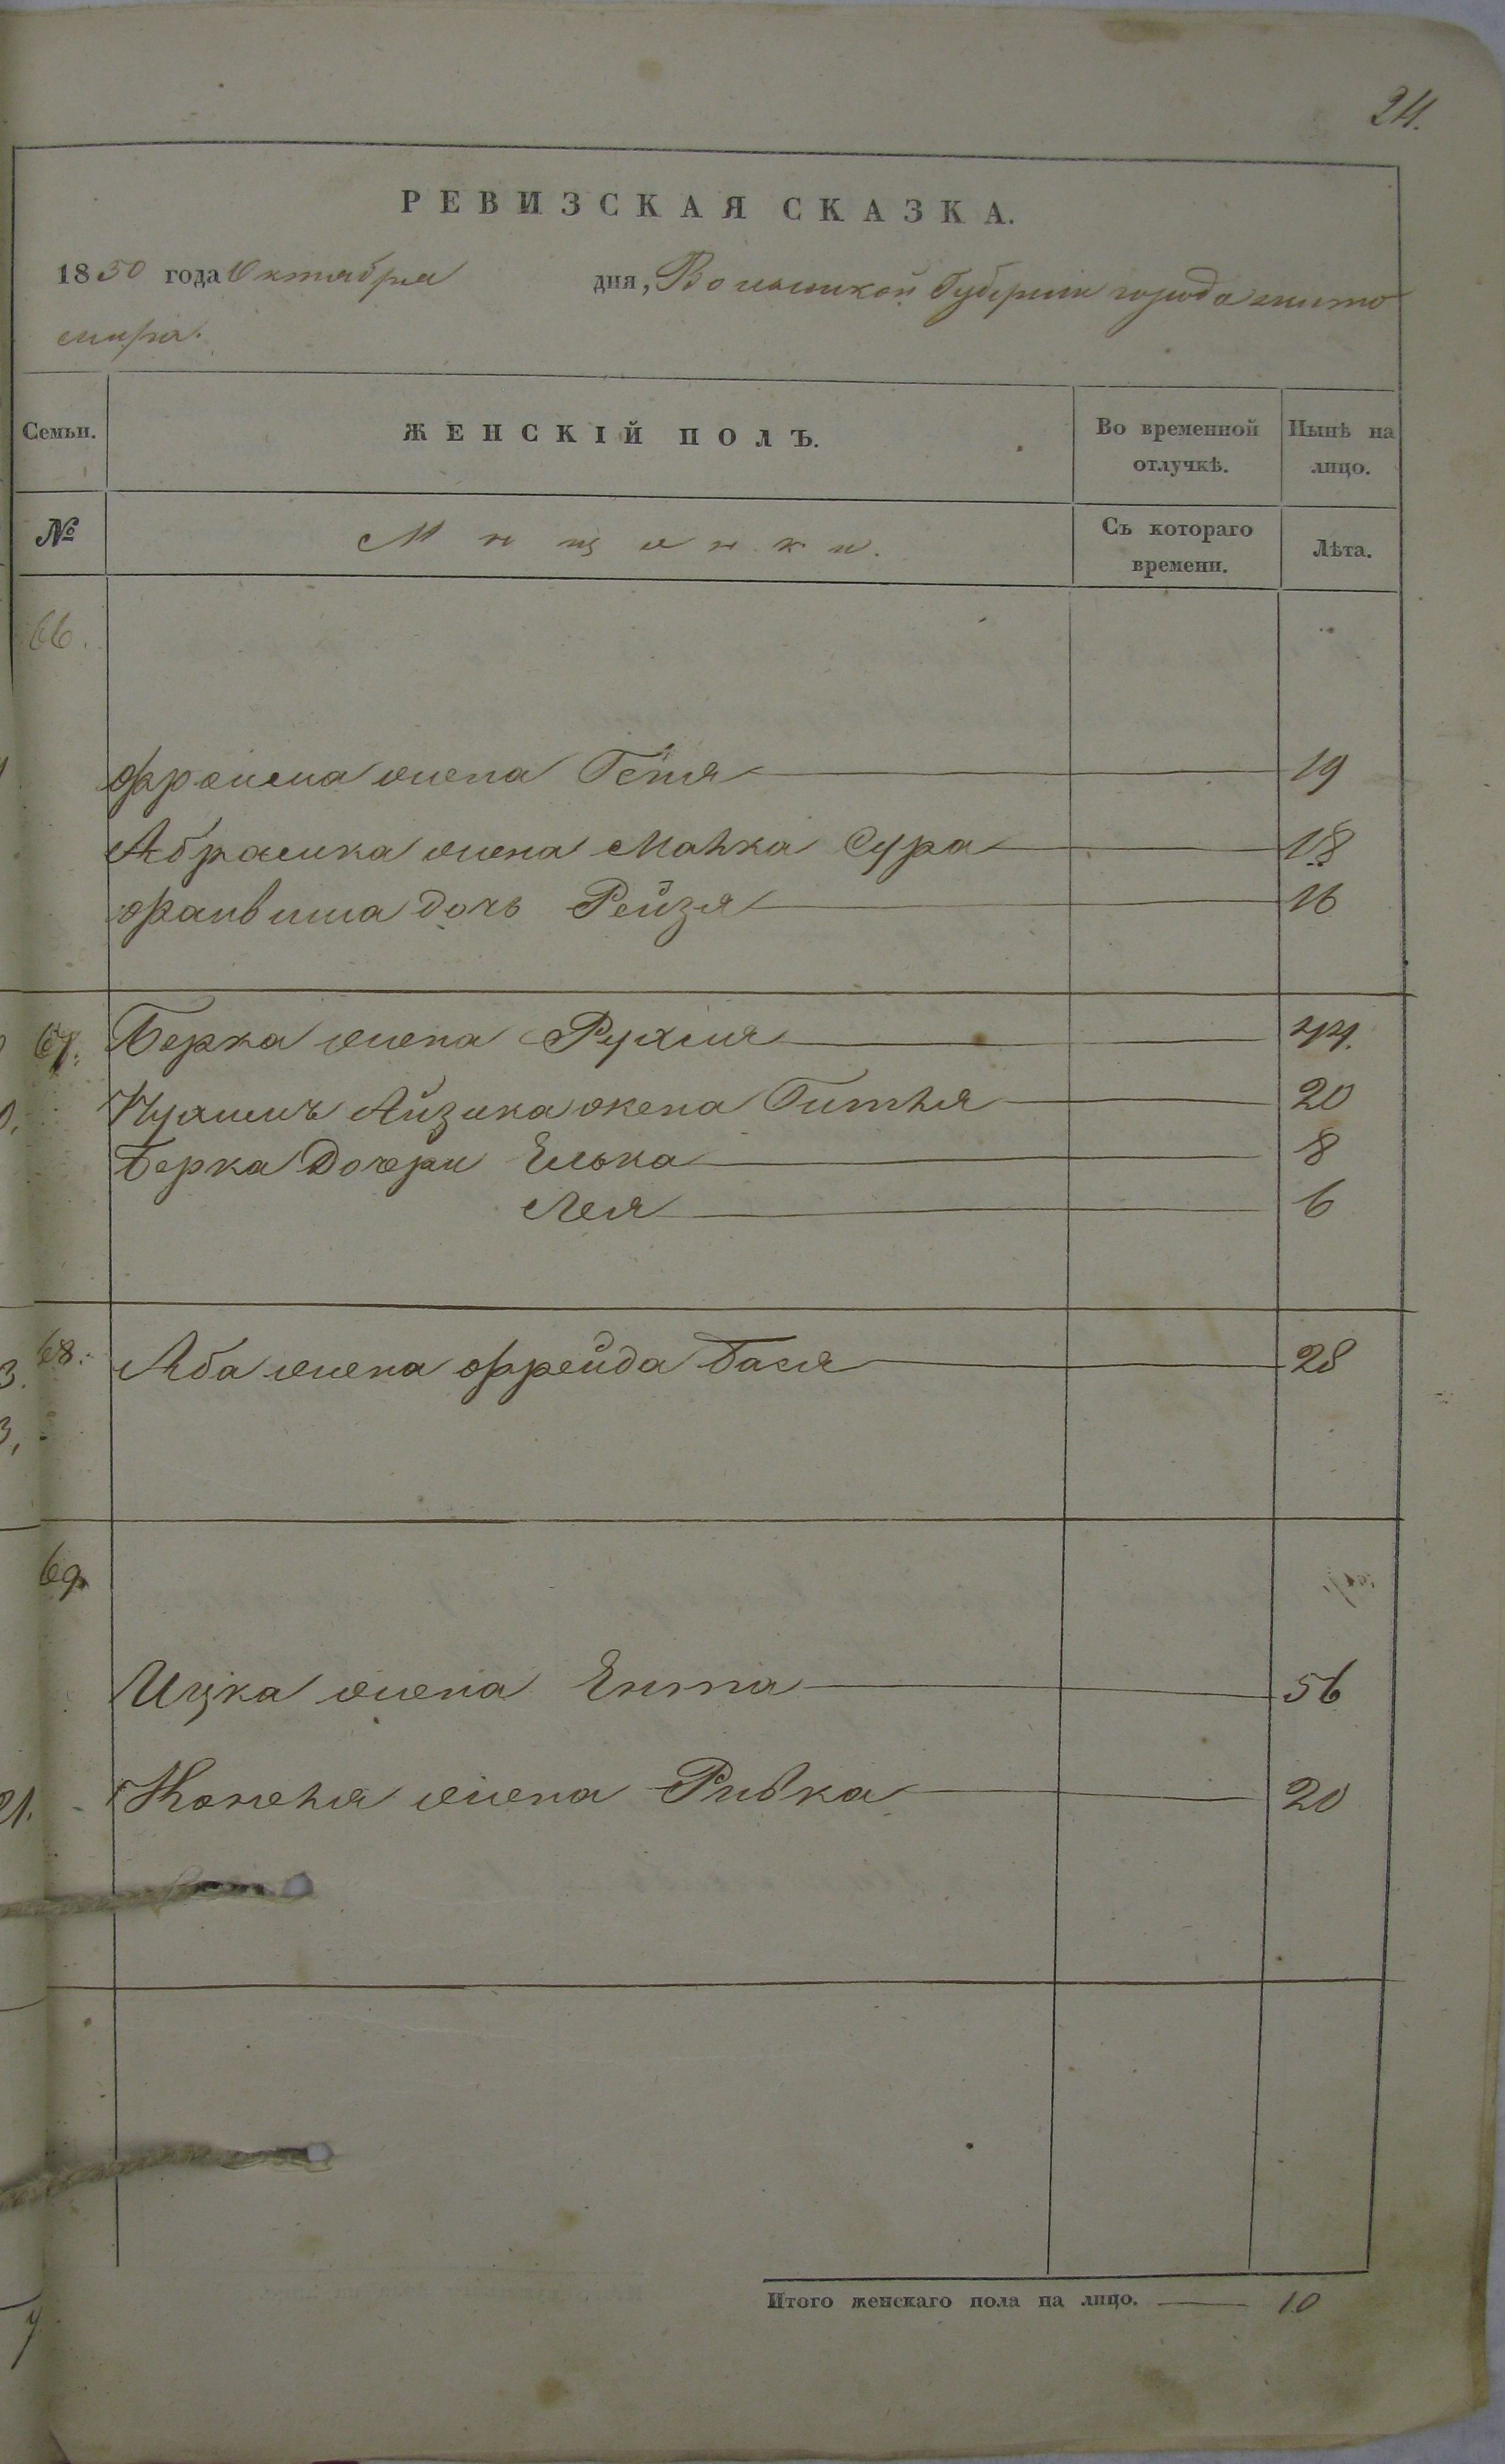 24.
РЕВИЗСКАЯ СКАЗКА.
1850 года Октября дня, Волынской Губерніи города Жито
мира.
Семьи. ЖЕНСКІЙ ПОЛЪ. Во временной отлучкѣ. Нынѣ на лицо.
№ Мѣщанки. Съ котораго времени. Лѣта.
66.
Фроима жена Геня 19
Абрамка жена Манка Сура 18
Файвиша дочь Рейзя 16
67. Берка жена Рухля 44.
Айзика жена Гитля 20
Берка Дочери Елька 8
Лея 6
68. Аба жена Фрейда Бася 28
69
Ицка жена Ента 56
жена Ривка 20
Итого женскаго пола на лицо. 10